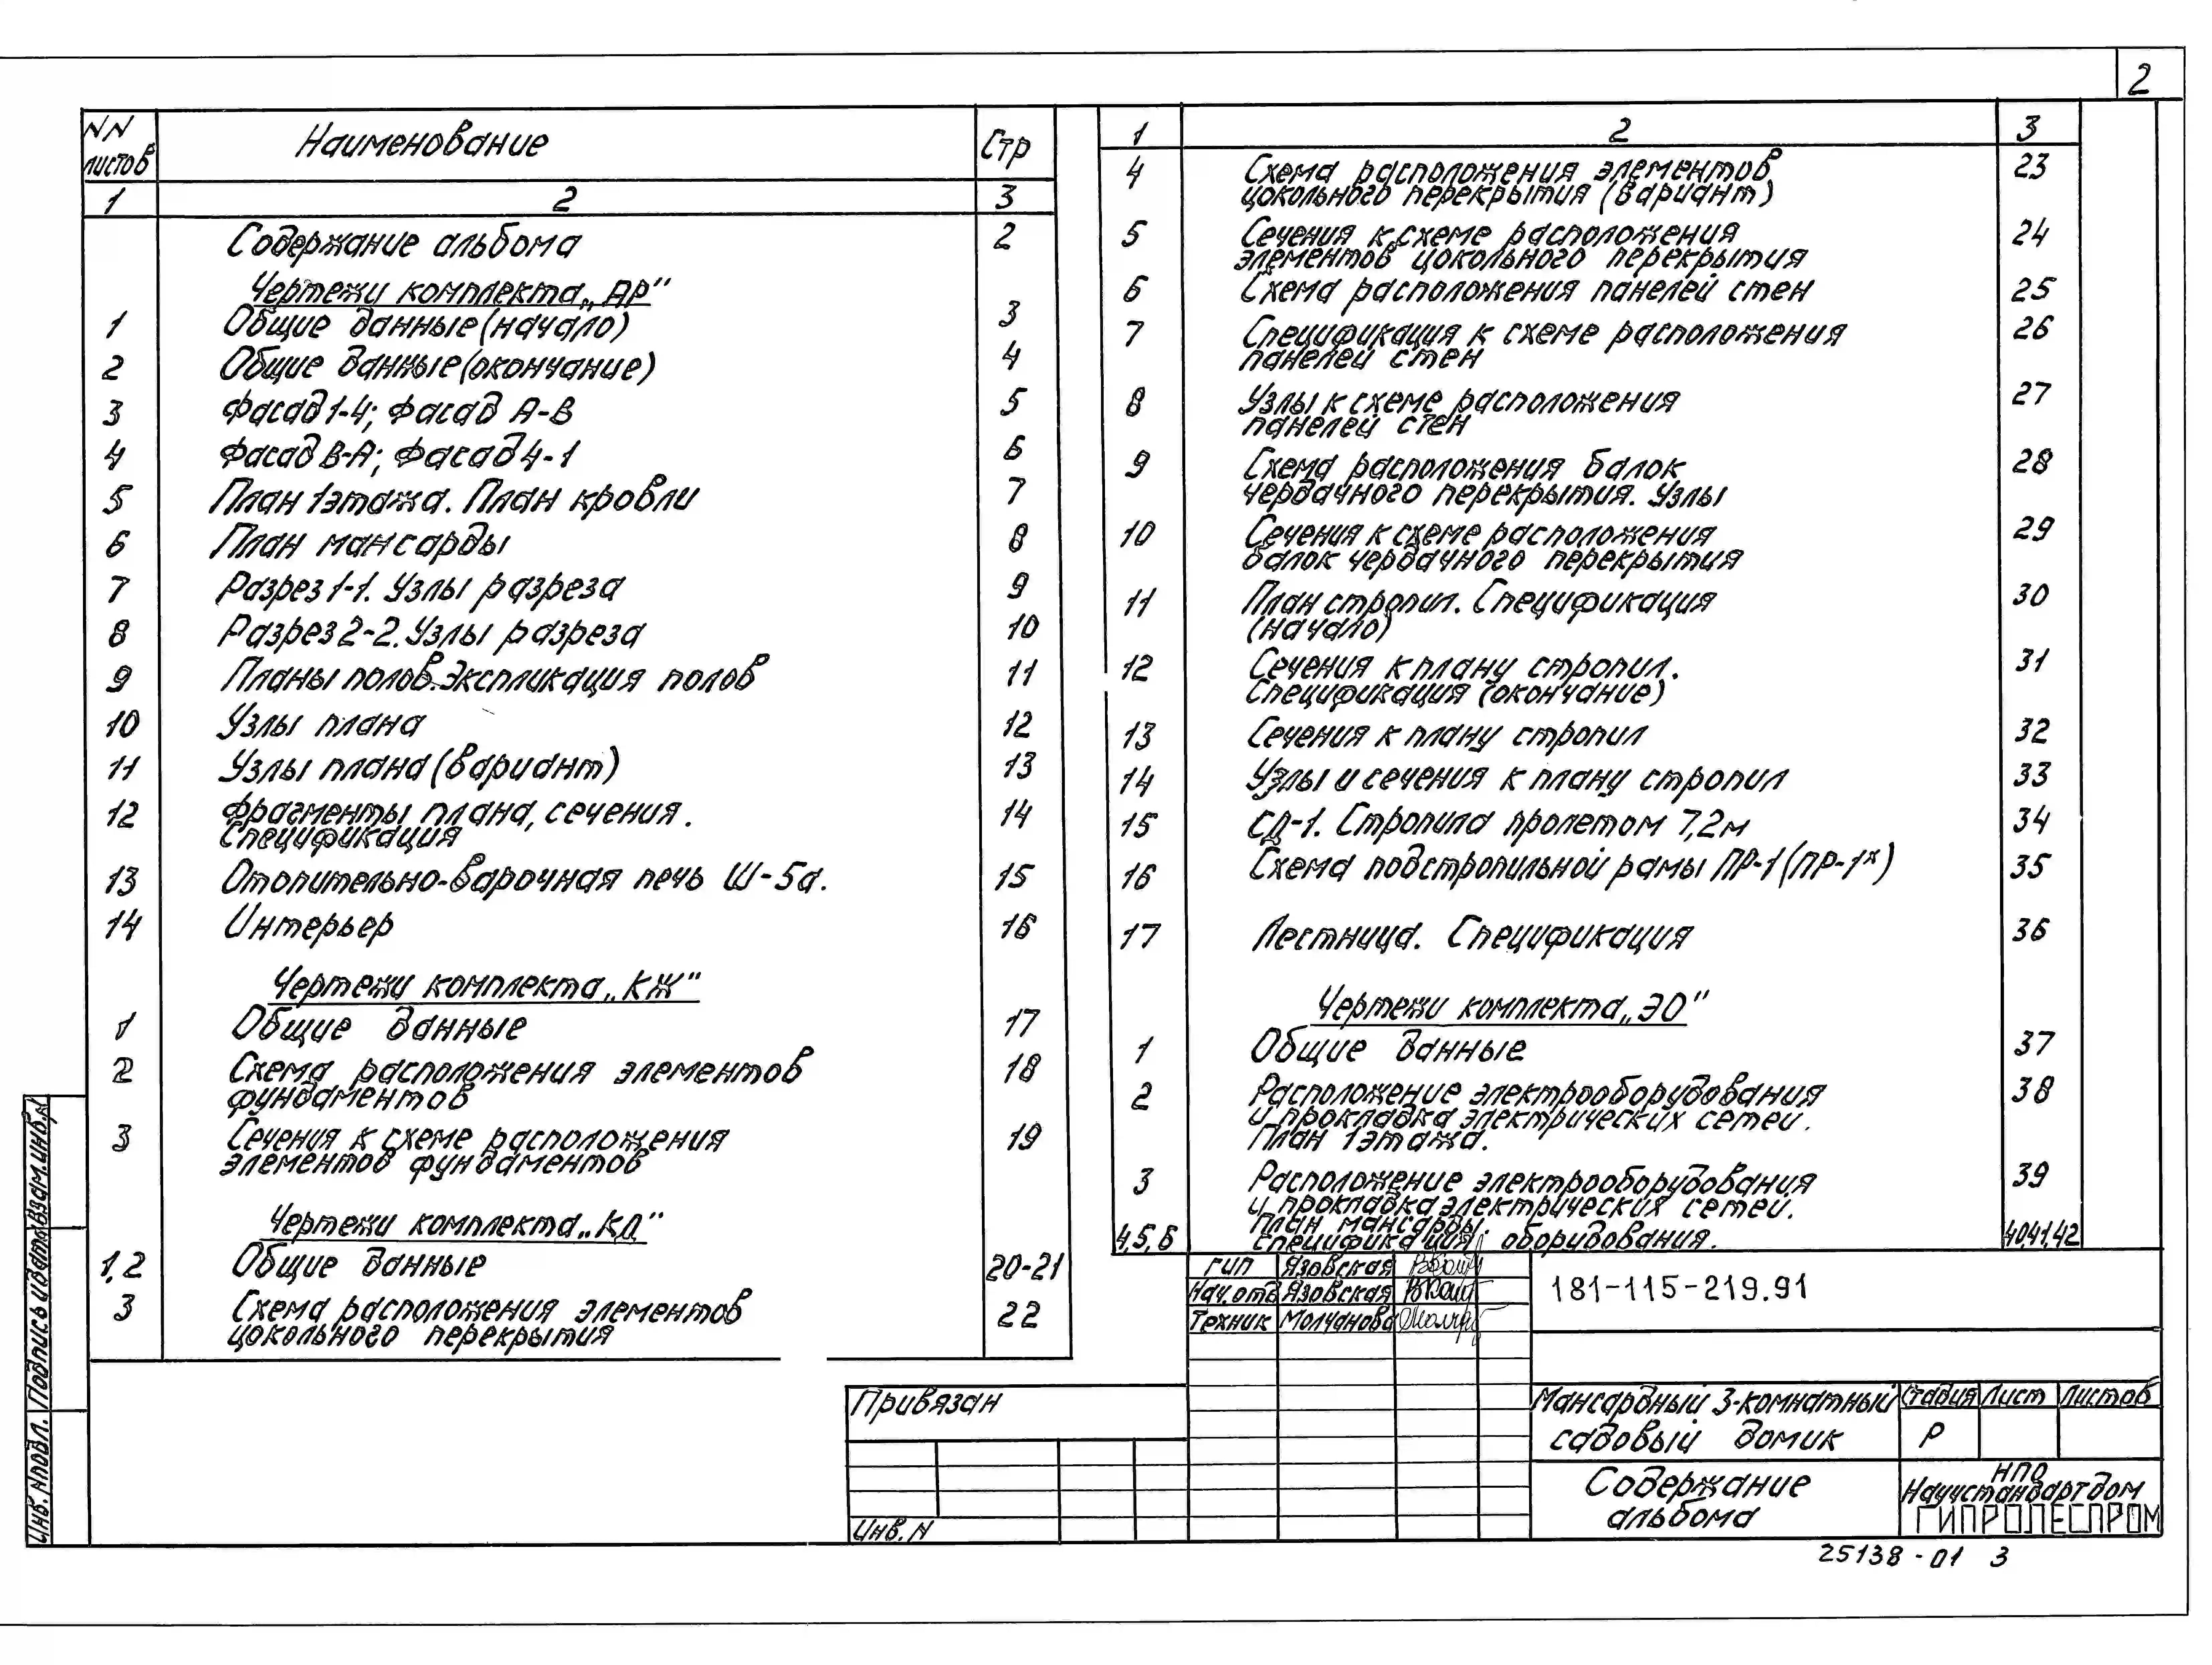 2
NN листов Наименование Стр
1 2 3
Содержание альбома 2
Чертежи комплекта „АР"
1 Общие данные (начало) 3
2 Общие данные (окончание) 4
3 Фасад 1-4; Фасад А-В 5
4 Фасад В-А; Фасад 4-1 6
5 План 1этажа. План кровли 7
6 План мансарды 8
7 Разрез 1-1. Узлы разреза 9
8 Разрез 2-2. Узлы разреза 10
9 Планы полов. Экспликация полов 11
10 Узлы плана 12
11 Узлы плана (вариант) 13
12 Фрагменты плана, сечения. 14
Спецификация
13 Отопительно-варочная печь Ш-5а. 15
14 Интерьер 16
Чертежи комплекта „КЖ"
1 Общие данные 17
2 Схема расположения элементов 18
фундаментов
3 Сечения к схеме расположения 19
элементов фундаментов
Чертежи комплекта „КД"
1,2 Общие данные 20-21
3 Схема расположения элементов 22
цокольного перекрытия
1 2 3
4 Схема расположения элементов 23
цокольного перекрытия (вариант)
5 Сечения к схеме расположения 24
элементов цокольного перекрытия
6 Схема расположения панелей стен 25
7 Спецификация к схеме расположения 26
панелей стен
8 Узлы к схеме расположения 27
панелей стен
9 Схема расположения балок 28
чердачного перекрытия. Узлы
10 Сечения к схеме расположения 29
балок чердачного перекрытия
11 План стропил. Спецификация 30
(начало)
12 Сечения к плану стропил. 31
Спецификация (окончание)
13 Сечения к плану стропил 32
14 Узлы и сечения к плану стропил 33
15 СД-1. Стропила пролетом 7,2м 34
16 Схема подстропильной рамы ПР-1 (ПР-1*) 35
17 Лестница. Спецификация 36
Чертежи комплекта „ЭО"
1 Общие данные 37
2 Расположение электрооборудования 38
и прокладка электрических сетей.
План 1этажа.
3 Расположение электрооборудования 39
и прокладка электрических сетей.
План мансарды.
4,5,6 Спецификация оборудования. 40,41,42
ГИП Язовская
Нач.отд Язовская
Техник Молчанова
181-115-219.91
Привязан
Инв. N
Мансардный 3-комнатный
садовый домик
Стадия Лист Листов
Р
Содержание
альбома
НПО
Научстандартдом
ГИПРОЛЕСПРОМ
25138-01 3
Инв. Nподл. Подпись и дата Взам.инв.N